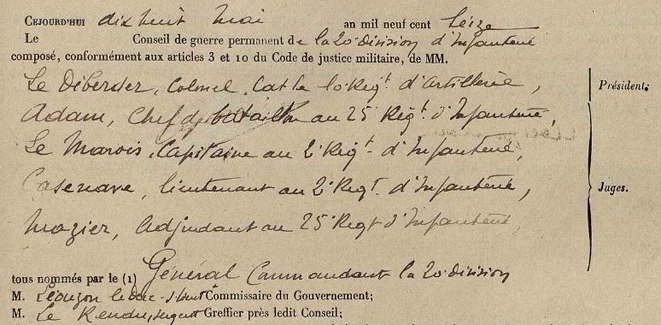 CEJOURD'HUI dix huit Mai an mil neuf cent Seize
Le Conseil de guerre permanent de la 20e division d'Infanterie
composé, conformément aux articles 3 et 10 du Code de justice militaire, de MM.
Le Diberder, Colonel, Cdt le 10e Régt d'Artillerie, Président.
Adam, Chef de bataillon au 25e Régt d'Infanterie,
Le Marois, Capitaine au 2e Régt d'Infanterie,
Casenave, lieutenant au 2e Régt d'Infanterie, Juges.
Mozier, Adjudant au 25e Régt d'Infanterie
tous nommés par le (1) Général Commandant la 20e division
M. Léouzon le Duc Commissaire du Gouvernement;
M. Le Rendu, sergent Greffier près ledit Conseil;